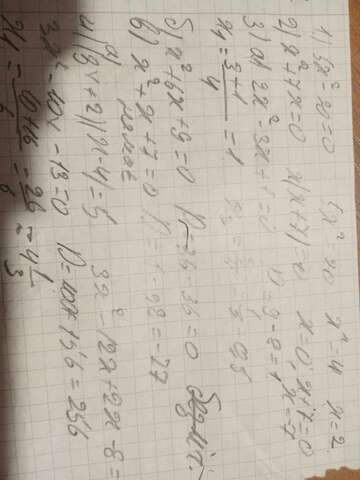 1) 5x²-20=0 5x²=20 x²=4 x=2
2) x²+7x=0 x(x+7)=0 x=0; x+7=0
x=-7
3) a) 2x²-3x+1=0 D=9-8=1
x₁=3+1/4=1
б) x²+6x+9=0 D=36-36=0
в) x²+x+7=0 D=1-28=-27
4) (3x+2)(x-4)=5 3x²-12x+2x-8=
3x²-10x-13=0 D=100+156=256
x₁=10+16/6=26/6=4 1/3